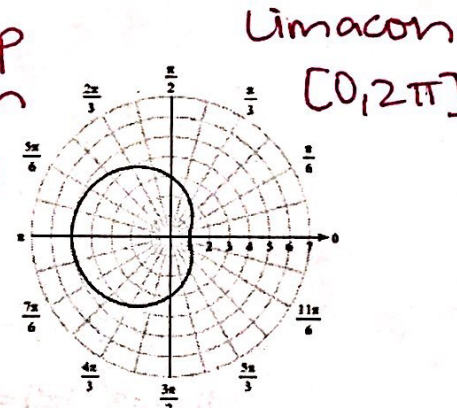 Limacon
P
[0,2π]
n
π/2
2π/3 π/3
5π/6 π/6
π 1 2 3 4 5 6 7 0
7π/6 11π/6
4π/3 5π/3
3π/2